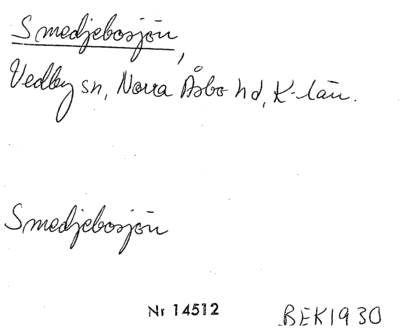 Smedjebosjön,
Vedby sn, Norra Åsbo hd, K-län.
Smedjebosjön
Nr 14512
BEK1930